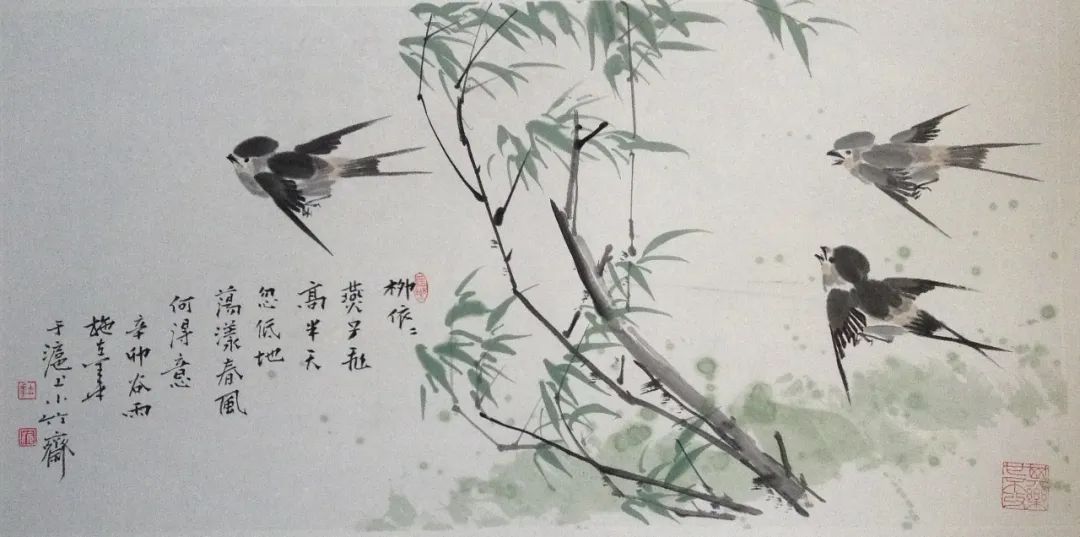 柳依〻
燕子飛
高半天
忽低地
蕩漾春風
何得意
辛卯谷雨
施立華
于滬上小竹齋